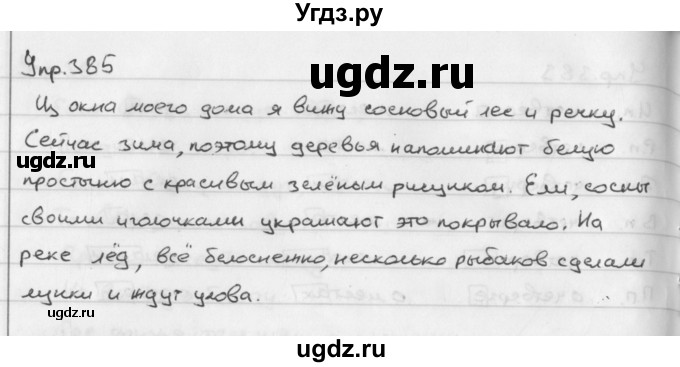 Угдз.ру
Упр.385
ugdz.ru
Из окна моего дома я вижу сосновый лес и речку.
Сейчас зима, поэтому деревья напоминают белую
ugdz.ru
простыню с красивым зелёным рисунком. Ели, сосны
своими иголочками украшают это покрывало. На
реке лёд, всё белоснежно, несколько рыбаков сделали
ugdz.ru
ugdz.ru
лунки и ждут улова.
ugdz.ru